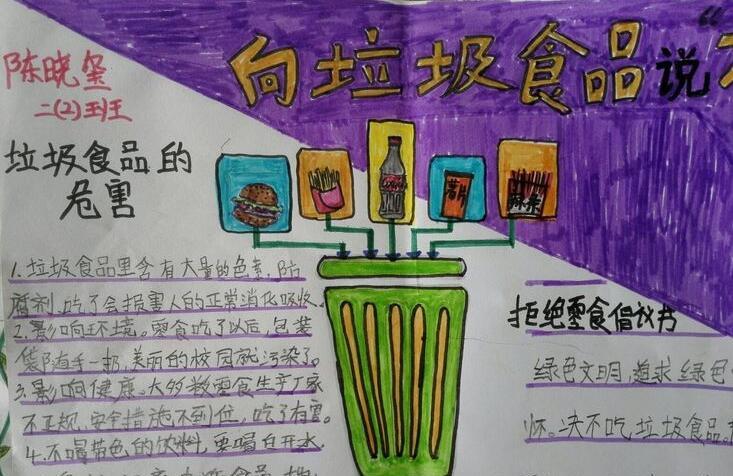 向垃圾食品说“
陈晓玺
二(2)班
垃圾食品的
危害
薯片
辣条
1.垃圾食品里含有大量的色素,防
腐剂,吃了会损害人的正常消化吸收。
2.影响环境。零食吃了以后,包装
袋随手一扔,美丽的校园就污染了。
3.影响健康。大多数零食生产厂家
不正规,安全措施不到位,吃了有害。
4.不喝带色的饮料,要喝白开水
拒绝零食倡议书
绿色文明,追求绿色
怀。决不吃垃圾食品。